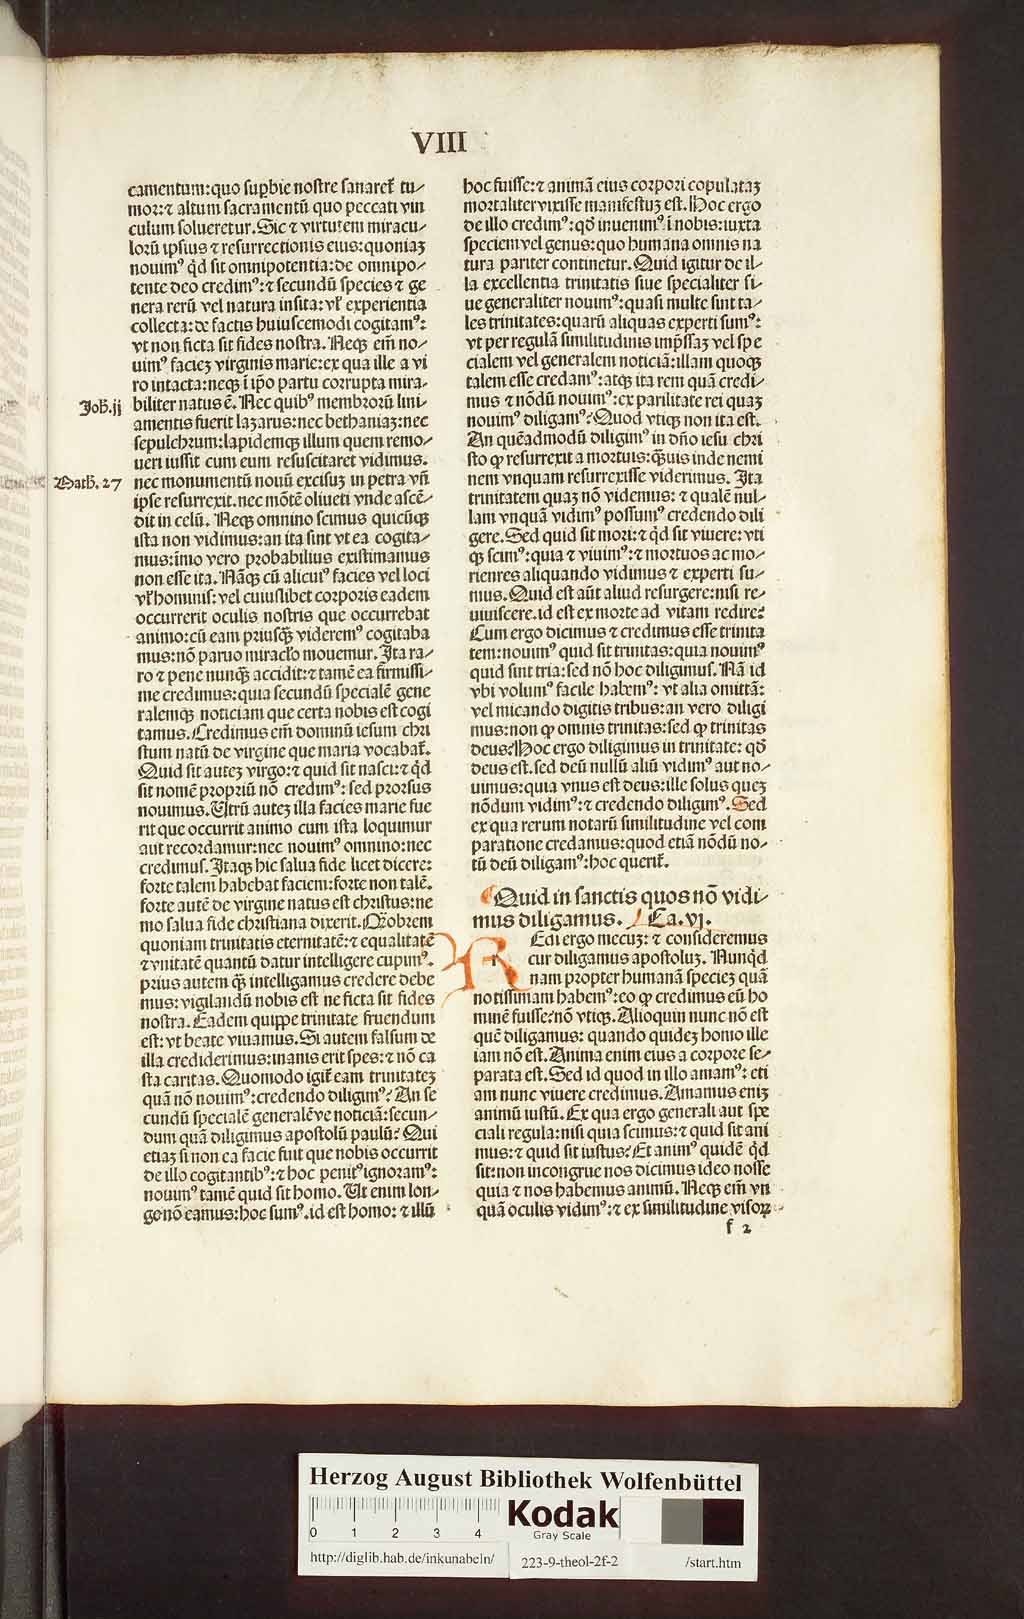 VIII
camentum:quo suꝑbie nostre sanareť tu⸗
mor:⁊ altum sacramentū quo peccati vin
culum solueretur.Sic ⁊ virtutem miracu⸗
lorū ipsius ⁊ resurrectionis eius:quoniaꝫ
nouimꝰ qͥd sit omnipotentia:de omnipo⸗
tente deo credimꝰ:⁊ secundū species ⁊ ge
nera rerū vel natura insita:vľ experientia
collecta:de factis huiuscemodi cogitamꝰ:
vt non ficta sit fides nostra.Neqꝫ em̄ no⸗
uimꝰ facieꝫ virginis marie:ex qua ille a vi
ro intacta:neqꝫ ī ip̄o partu corrupta mira⸗
Joh̄.ij
biliter natus ē.Nec quibꝰ membrorū lini⸗
amentis fuerit lazarus:nec bethaniaꝫ:nec
sepulchrum:lapidemqꝫ illum quem remo⸗
ueri iussit cum eum resuscitaret vidimus.
Math̄.27
nec monumentū nouū excisuꝫ in petra vn̄
ipse resurrexit.nec mōtē oliueti vnde ascē⸗
dit in celū.Neqꝫ omnino scimus quicūqꝫ
ista non vidimus:an ita sint vt ea cogita⸗
mus:īmo vero probabilius existimamus
non esse ita.Nāqꝫ cū alicuiꝰ facies vel loci
vľ hominis:vel cuiuslibet corporis eadem
occurrerit oculis nostris que occurrebat
animo:cū eam priusqꝫ̄ videremꝰ cogitaba
mus:nō paruo miracľo mouemur.Ita ra⸗
ro ⁊ pene nunqꝫ̄ accidit:⁊ tamē ea firmissi⸗
me credimus:quia secundū specialē gene
ralemqꝫ noticiam que certa nobis est cogi
tamus.Credimus em̄ dominū iesum chri
stum natū de virgine que maria vocabať.
Quid sit auteꝫ virgo:⁊ quid sit nasci:⁊ qͥd
sit nomē propriū nō credimꝰ:sed prorsus
nouimus.Utrū auteꝫ illa facies marie fue
rit que occurrit animo cum ista loquimur
aut recordamur:nec nouimꝰ omnino:nec
credimus.Itaqꝫ hic salua fide licet dicere:
forte talem habebat faciem:forte non talē.
forte autē de virgine natus est christus:ne
mo salua fide christiana dixerit.Qꝫobrem
quoniam trinitatis eternitatē:⁊ equalitatē
⁊ vnitatē quantū datur intelligere cupimꝰ.
prius autem qꝫ̄ intelligamus credere debe
mus:vigilandū nobis est ne ficta sit fides
nostra.Eadem quippe trinitate fruendum
est:vt beate viuamus.Si autem falsum de
illa crediderimus:inanis erit spes:⁊ nō ca
sta caritas.Quomodo igiť eam trinitateꝫ
quā nō nouimꝰ:credendo diligimꝰ?An se
cundū specialē generalēve noticiā:secun⸗
dum quā diligimus apostolū paulū?Qui
etiaꝫ si non ea facie fuit que nobis occurrit
de illo cogitantibꝰ:⁊ hoc penitꝰ ignoramꝰ:
nouimꝰ tamē quid sit homo.Ut enim lon⸗
ge nō eamus:hoc sumꝰ.id est homo:⁊ illū
hoc fuisse:⁊ animā eius corpori copulataꝫ
mortaliter vixisse manifestuꝫ est.Hoc ergo
de illo credimꝰ:qd̄ inuenimꝰ ī nobis:iuxta
speciem vel genus:quo humana omnis na
tura pariter continetur.Quid igitur de il⸗
la excellentia trinitatis siue specialiter si⸗
ue generaliter nouimꝰ:quasi multe sint ta⸗
les trinitates:quarū aliquas experti sumꝰ:
vt per regulā similitudinis imp̄ssaꝫ vel spe
cialem vel generalem noticiā:illam quoqꝫ
talem esse credamꝰ:atqꝫ ita rem quā credi⸗
mus ⁊ nōdū nouimꝰ:ex parilitate rei quaꝫ
nouimꝰ diligamꝰ?Quod vtiqꝫ non ita est.
An quēadmodū diligimꝰ in dn̄o iesu chri
sto ꝙ resurrexit a mortuis:qꝫ̄uis inde nemi
nem vnquam resurrexisse viderimus.Ita
trinitatem quaꝫ nō videmus:⁊ qualē nul⸗
lam vnquā vidimꝰ possumꝰ credendo dili
gere.Sed quid sit mori:⁊ qͥd sit viuere:vti
qꝫ scimꝰ:quia ⁊ viuimꝰ:⁊ mortuos ac mo⸗
rientes aliquando vidimus ⁊ experti su⸗
mus.Quid est aūt aliud resurgere:nisi re⸗
uiuiscere.id est ex morte ad vitam redire?
Cum ergo dicimus ⁊ credimus esse trinita
tem:nouimꝰ quid sit trinitas:quia nouimꝰ
quid sint tria:sed nō hoc diligimus.Nā id
vbi volumꝰ facile habemꝰ:vt alia omittā:
vel micando digitis tribus:an vero diligi
mus:non ꝙ omnis trinitas:sed ꝙ trinitas
deus?Hoc ergo diligimus in trinitate:qd̄
deus est.sed deū nullū aliū vidimꝰ aut no⸗
uimus:quia vnus est deus:ille solus queꝫ
nōdum vidimꝰ:⁊ credendo diligimꝰ.Sed
ex qua rerum notarū similitudine vel com
paratione credamus:quod etiā nōdū no⸗
tū deū diligamꝰ:hoc querit̄.
Quid in sanctis quos nō vidi⸗
mus diligamus. Ca.vj.
REdi ergo mecuꝫ:⁊ consideremus
cur diligamus apostoluꝫ.Nunqͥd
nam propter humanā specieꝫ quā
notissimam habemꝰ:eo ꝙ credimus eū ho
minē fuisse?nō vtiqꝫ.Alioquin nunc nō est
quē diligamus:quando quideꝫ homo ille
iam nō est.Anima enim eius a corpore se⸗
parata est.Sed id quod in illo amamꝰ:eti
am nunc viuere credimus.Amamus eniꝫ
animū iustū.Ex qua ergo generali aut spe
ciali regula:nisi quia scimus:⁊ quid sit ani
mus:⁊ quid sit iustus?Et animꝰ quidē qͥd
sit:non incongrue nos dicimus ideo nosse
quia ⁊ nos habemus animū.Neqꝫ em̄ vn
quā oculis vidimꝰ:⁊ ex similitudine visoꝝ
f 2
Herzog August Bibliothek Wolfenbüttel
0 1 2 3 4
Kodak
Gray Scale
http://diglib.hab.de/inkunabeln/
223-9-theol-2f-2
/start.htm